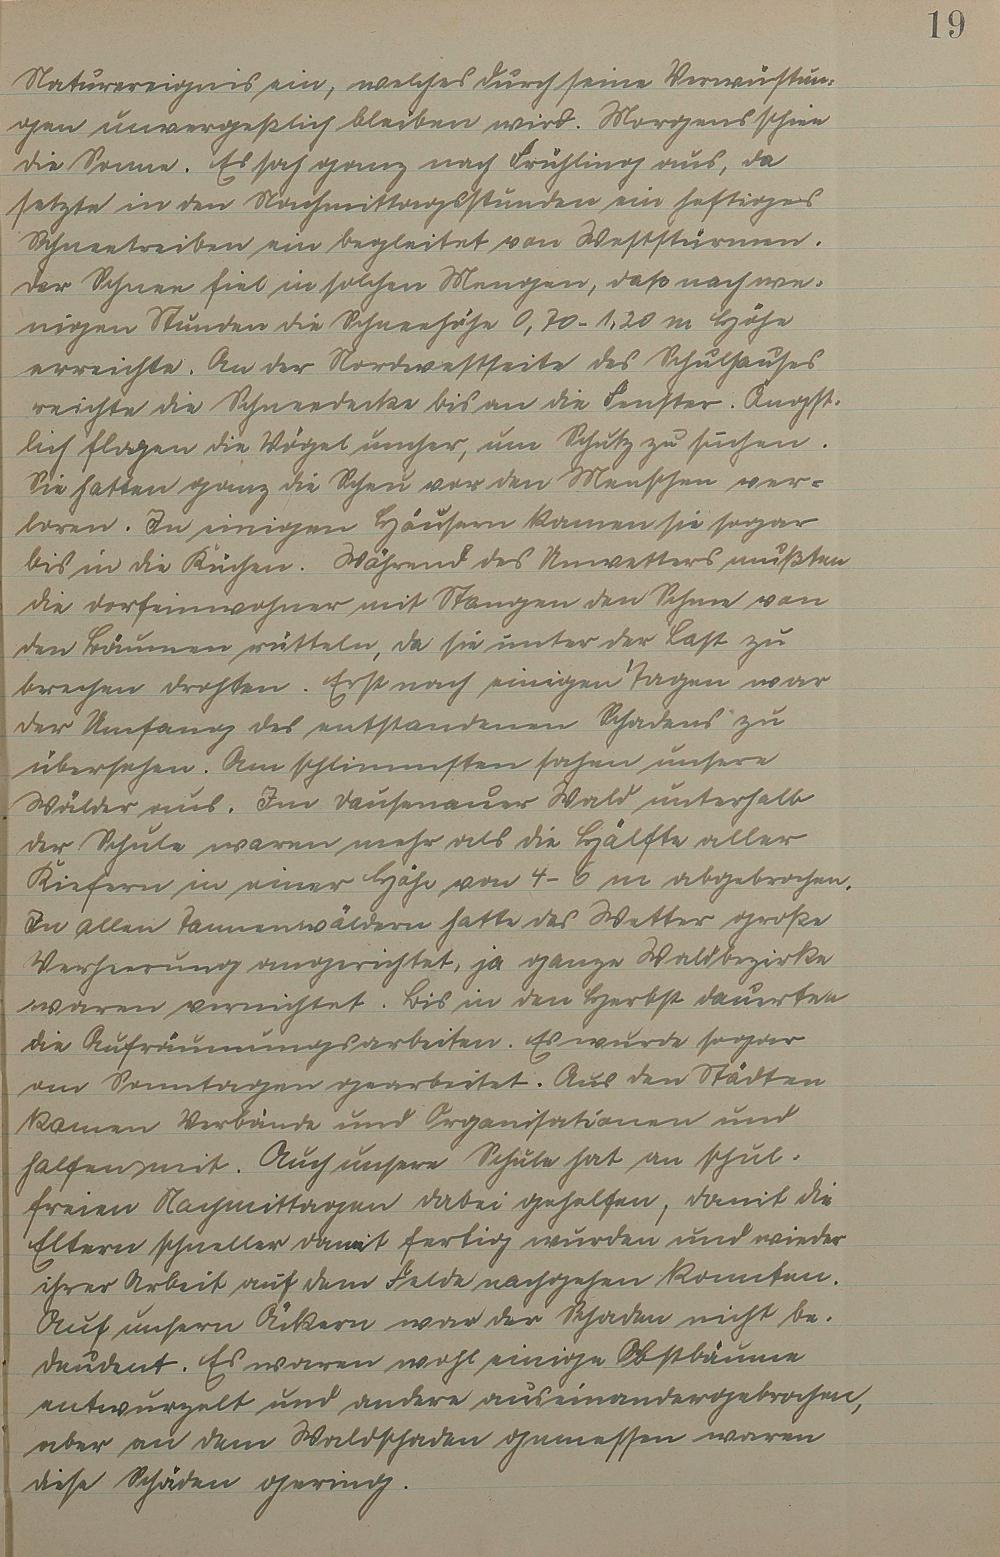 19
Naturereignis ein, welches durch seine Verwüstun-
gen unvergeßlich bleiben wird. Morgens schien
die Sonne. Es sah ganz nach Frühling aus, da
setzte in den Nachmittagsstunden ein heftiges
Schneetreiben ein begleitet von Weststürmen.
Der Schnee fiel in solchen Mengen, daß nach we-
nigen Stunden die Schneehöhe 0,70 - 1,20 m Höhe
erreichte. An der Nordwestseite des Schulhauses
reichte die Schneedecke bis an die Fenster. Ängst-
lich flogen die Vögel umher, um Schutz zu suchen.
Sie hatten ganz die Scheu vor den Menschen ver-
loren. In einigen Häusern kamen sie sogar
bis in die Küchen. Während des Unwetters mußten
die Dorfeinwohner mit Stangen den Schnee von
den Bäumen rütteln, da sie unter der Last zu
brechen drohten. Erst nach einigen Tagen war
der Umfang des entstandenen Schadens zu
übersehen. Am schlimmsten sahen unsere
Wälder aus. Im Dausenauer Wald unterhalb
der Schule waren mehr als die Hälfte aller
Kiefern in einer Höhe von 4 - 6 m abgebrochen.
In allen Tannenwäldern hatte das Wetter große
Verheerung angerichtet, ja ganze Waldbezirke
waren vernichtet. Bis in den Herbst dauerten
die Aufräumungsarbeiten. Es wurde sogar
am Sonntagen gearbeitet. Aus den Städten
kamen Verbände und Organisationen und
halfen mit. Auch unsere Schule hat an schul-
freien Nachmittagen dabei geholfen, damit die
Eltern schneller damit fertig wurden und wieder
ihrer Arbeit auf dem Felde nachgehen konnten.
Auf unsern Äckern war der Schaden nicht be-
deudent. Es waren wohl einige Obstbäume
entwurzelt und andere auseinandergebrochen,
aber an dem Waldschaden gemessen waren
diese Schäden gering.